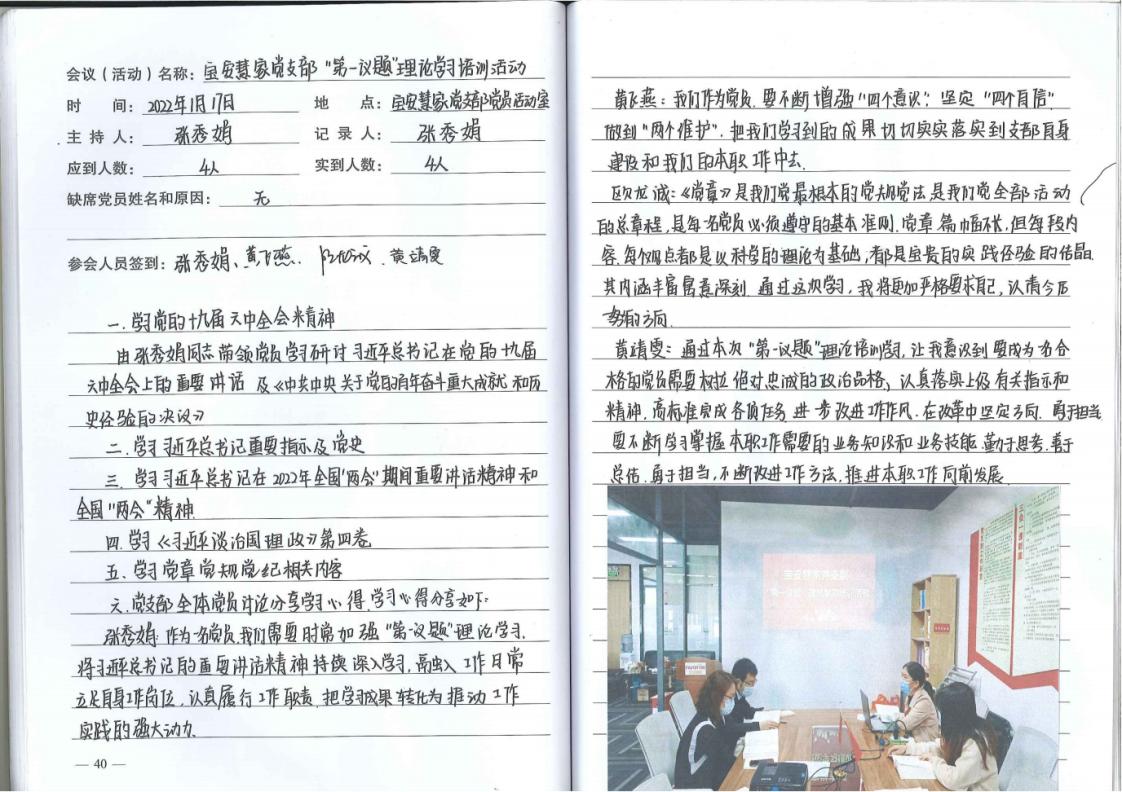 会议（活动）名称：宝安慧家党支部“第一议题”理论学习培训活动
时 间：2022年1月17日 地 点：宝安慧家党支部党员活动室
主 持 人：张秀娟 记 录 人：张秀娟
应到人数：4人 实到人数：4人
缺席党员姓名和原因：无
参会人员签到：张秀娟、黄飞燕、 黄靖雯
一.学习党的十九届六中全会精神
由张秀娟同志带领党员学习研讨习近平总书记在党的十九届
六中全会上的重要讲话及《中共中央关于党的百年奋斗重大成就和历
史经验的决议》
二.学习习近平总书记重要指示及党史
三.学习习近平总书记在2022年全国“两会”期间重要讲话精神和
全国“两会”精神
四.学习《习近平谈治国理政》第四卷
五.学习党章党规党纪相关内容
六.党支部全体党员讨论分享学习心得.学习心得分享如下:
张秀娟:作为一名党员,我们需要时常加强“第一议题”理论学习.
将习近平总书记的重要讲话精神持续深入学习,融入工作日常
立足自身工作岗位,认真履行工作职责.把学习成果转化为推动工作
实践的强大动力.
— 40 —
黄飞燕:我们作为党员.要不断增强“四个意识”.坚定“四个自信”
做到“两个维护”.把我们学习到的成果切切实实落实到支部自身
建设和我们的本职工作中去.
欧龙诚:《党章》是我们党最根本的党规党法是我们党全部活动
的总章程,是每名党员必须遵守的基本准则.党章篇幅不长,但每段内
容.每个观点都是以科学的理论为基础,都是宝贵的实践经验的结晶.
其内涵丰富寓意深刻.通过这次学习,我将更加严格要求自己,认清今后
努力的方向.
黄靖雯:通过本次“第一议题”理论培训学习,让我意识到要成为一名合
格的党员需要树立绝对忠诚的政治品格,认真落实上级有关指示和
精神.高标准完成各项任务.进一步改进工作作风.在改革中坚定方向.勇于担当
要不断学习掌握本职工作需要的业务知识和业务技能.勤于思考.善于
总结.勇于担当,不断改进工作方法,推进本职工作向前发展.
三会一课制度